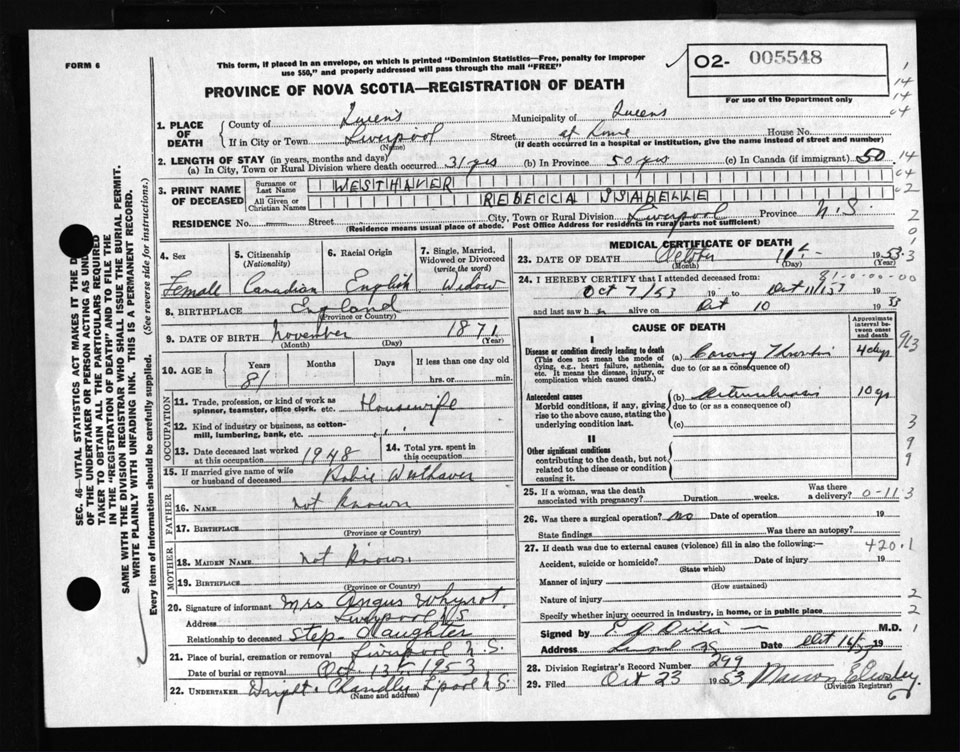 FORM 6
This form, if placed in an envelope, on which is printed "Dominion Statistics—Free, penalty for improper
use $50," and properly addressed will pass through the mail "FREE"
PROVINCE OF NOVA SCOTIA—REGISTRATION OF DEATH
O2- 005548
For use of the Department only
1. PLACE OF DEATH
County of Queens Municipality of Queens
If in City or Town Liverpool Street at home House No.
(Name) (If death occurred in a hospital or institution, give name instead of street and number)
2. LENGTH OF STAY (in years, months and days)
(a) In City, Town or Rural Division where death occurred 31 yrs (b) In Province 50 yrs (c) In Canada (if immigrant) 50
3. PRINT NAME OF DECEASED
Surname or Last Name WESTHAVER
All Given or Christian Names REBECCA ISABELLE
RESIDENCE No. Street City, Town or Rural Division Liverpool Province N.S.
(Residence means usual place of abode. Post Office Address for residents in rural parts not sufficient)
4. Sex
Female
5. Citizenship (Nationality)
Canadian
6. Racial Origin
English
7. Single, Married, Widowed or Divorced (write the word)
Widow
8. BIRTHPLACE England
(Province or Country)
9. DATE OF BIRTH November 1871
(Month) (Day) (Year)
10. AGE in Years Months Days If less than one day old
81 hrs. or min.
OCCUPATION
11. Trade, profession, or kind of work as
spinner, teamster, office clerk, etc. Housewife
12. Kind of industry or business, as cotton-
mill, lumbering, bank, etc. " "
13. Date deceased last worked
at this occupation 1948
14. Total yrs. spent in
this occupation
15. If married give name of wife
or husband of deceased Robie Westhaver
FATHER
16. NAME not known
17. BIRTHPLACE
(Province or Country)
MOTHER
18. MAIDEN NAME not known
19. BIRTHPLACE
(Province or Country)
20. Signature of informant Mrs Angus Whynot
Address Liverpool N.S.
Relationship to deceased Step-daughter
21. Place of burial, cremation or removal Liverpool N.S.
Date of burial or removal Oct 13th 1953
22. UNDERTAKER Wright & Chandler L'pool N.S.
(Name and address)
MEDICAL CERTIFICATE OF DEATH
23. DATE OF DEATH October 1953
(Month) (Day) (Year)
24. I HEREBY CERTIFY that I attended deceased from: 81-0-00-00
Oct 7/53 19 to Oct 11/53 19
and last saw her alive on Oct 10 1953
CAUSE OF DEATH
Approximate interval between onset and death
I
Disease or condition directly leading to death (a) 4 days
(This does not mean the mode of due to (or as a consequence of)
dying, e.g., heart failure, asthenia,
etc. It means the disease, injury, or
complication which caused death.)
Antecedent causes (b) 10 yrs
Morbid conditions, if any, giving due to (or as a consequence of)
rise to the above cause, stating the
underlying condition last. (c)
II
Other significant conditions
contributing to the death, but not
related to the disease or condition
causing it.
25. If a woman, was the death Was there
associated with pregnancy? Duration weeks. a delivery? 0-11
26. Was there a surgical operation? no Date of operation 19
State findings Was there an autopsy?
27. If death was due to external causes (violence) fill in also the following:— 420.1
Accident, suicide or homicide? Date of injury 19
(State which)
Manner of injury
(How sustained)
Nature of injury
Specify whether injury occurred in industry, in home, or in public place
Signed by M.D.
Address Date 19
28. Division Registrar's Record Number 299
29. Filed Oct 23 1953
(Division Registrar)
SEC. 46—VITAL STATISTICS ACT MAKES IT THE
OF THE UNDERTAKER OR PERSON ACTING AS
TAKER TO OBTAIN ALL THE PARTICULARS REQUIRED
IN THE "REGISTRATION OF DEATH" AND TO FILE THE
SAME WITH THE DIVISION REGISTRAR WHO SHALL ISSUE THE BURIAL PERMIT.
WRITE PLAINLY WITH UNFADING INK. THIS IS A PERMANENT RECORD.
Every item of information should be carefully supplied. (See reverse side for instructions.)